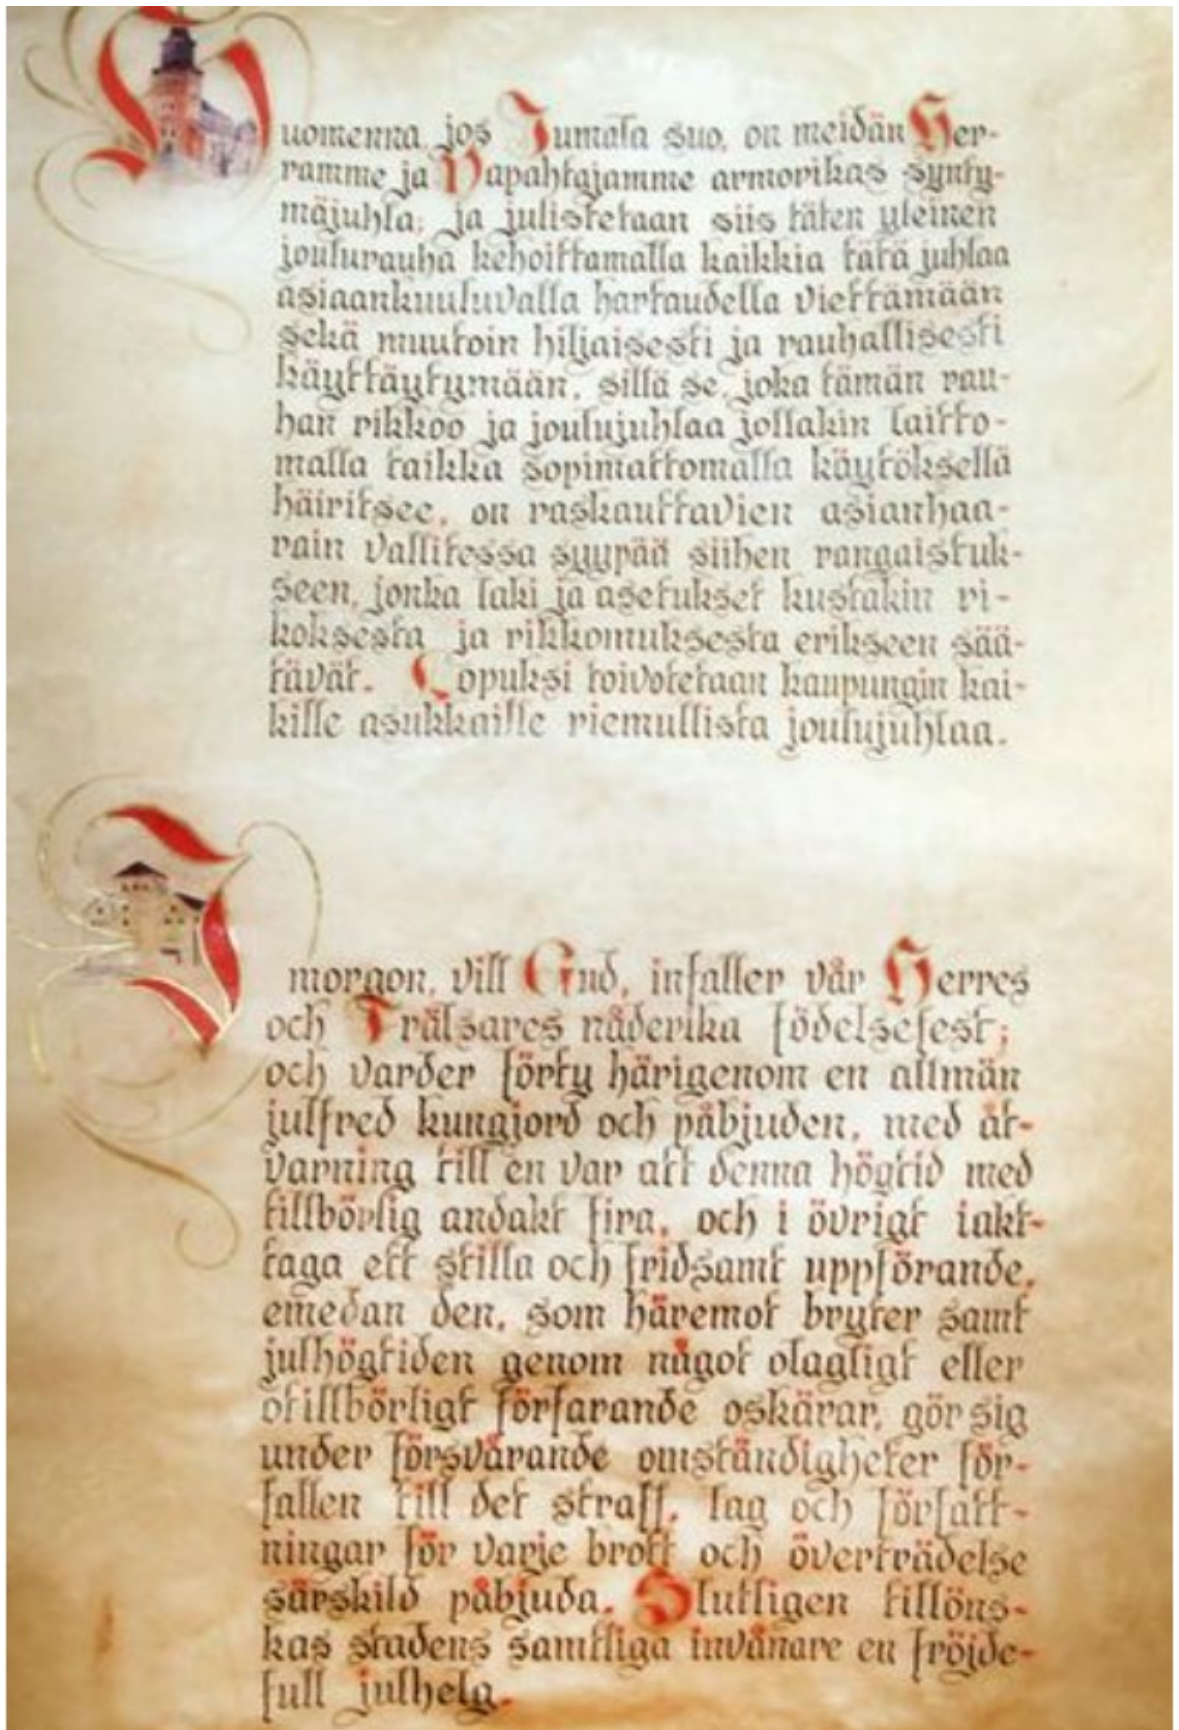 Huomenna, jos Jumala suo, on meidän Her-
ramme ja Vapahtajamme armorikas synty-
mäjuhla; ja julistetaan siis täten yleinen
joulurauha kehoittamalla kaikkia tätä juhlaa
asiaankuuluvalla hartaudella viettämään
sekä muutoin hiljaisesti ja rauhallisesti
käyttäytymään, sillä se, joka tämän rau-
han rikkoo ja joulujuhlaa jollakin laitto-
malla taikka sopimattomalla käytöksellä
häiritsee, on raskauttavien asianhaa-
rain vallitessa syypää siihen rangaistuk-
seen, jonka laki ja asetukset kustakin ri-
koksesta ja rikkomuksesta erikseen sää-
tävät. Lopuksi toivotetaan kaupungin kai-
kille asukkaille riemullista joulujuhlaa.
I morgon, vill Gud, infaller vår Herres
och Frälsares nåderika födelsefest;
och varder förty härigenom en allmän
julfred kungjord och påbjuden, med åt-
varning till en var att denna högtid med
tillbörlig andakt fira, och i övrigt iakt-
taga ett stilla och fridsamt uppförande,
emedan den, som häremot bryter samt
julhögtiden genom något olagligt eller
otillbörligt förfarande oskärar, gör sig
under försvårande omständigheter för-
fallen till det straff, lag och författ-
ningar för varje brott och överträdelse
särskild påbjuda. Slutligen tillöns-
kas stadens samtliga invånare en fröjde-
full julhelg.